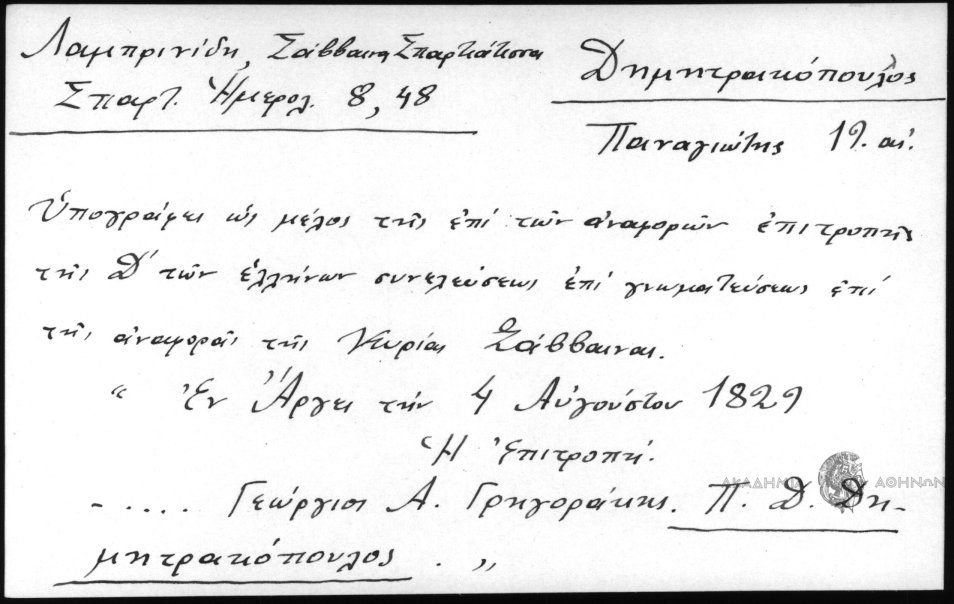 Λαμπρινίδη, Σάββαινα Σπαρτιάτισσα
Σπαρτ. Ἡμερολ. 8, 48
Δημητρακόπουλος
Παναγιώτης 19. αἰ.
Ὑπογράφει ὡς μέλος τῆς ἐπί τῶν ἀναφορῶν ἐπιτροπῆς
τῆς Δ΄ τῶν ἑλλήνων συνελεύσεως ἐπί γνωματεύσεως ἐπί
τῆς ἀναφορᾶς τῆς Κυρίας Σάββαινας.
“ Ἐν Ἄργει τήν 4 Αὐγούστου 1829
Ἡ Ἐπιτροπή.
ΑΚΑΔΗΜΙΑ ΑΘΗΝΩΝ
- .... Γεώργιος Α. Γρηγοράκης. Π. Δ. Δη-
μητρακόπουλος . „